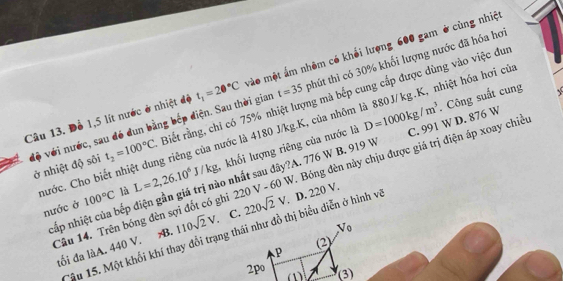 Câu 13. Đổ 1,5 lít nước ở nhiệt độ t₁ = 20°C vào một ấm nhôm có khối lượng 600 gam ở cùng nhiệt
độ với nước, sau đó đun bằng bếp điện. Sau thời gian t = 35 phút thì có 30% khối lượng nước đã hóa hơi
ở nhiệt độ sôi t₂ = 100°C. Biết rằng, chỉ có 75% nhiệt lượng mà bếp cung cấp được dùng vào việc đun
nước. Cho biết nhiệt dung riêng của nước là 4180 J/kg.K, của nhôm là 880 J/kg.K, nhiệt hóa hơi của
nước ở 100°C là L = 2,26.10⁶ J/kg, khối lượng riêng của nước là D = 1000kg/m³. Công suất cung
cấp nhiệt của bếp điện gần giá trị nào nhất sau đây? A. 776 W B. 919 W C. 991 W D. 876 W
Câu 14. Trên bóng đèn sợi đốt có ghi 220 V - 60 W. Bóng đèn này chịu được giá trị điện áp xoay chiều
tối đa là A. 440 V. B. 110√2 V. C. 220√2 V. D. 220 V.
Câu 15. Một khối khí thay đổi trạng thái như đồ thị biểu diễn ở hình vẽ
p V₀
2p₀ (2)
(1) (3)